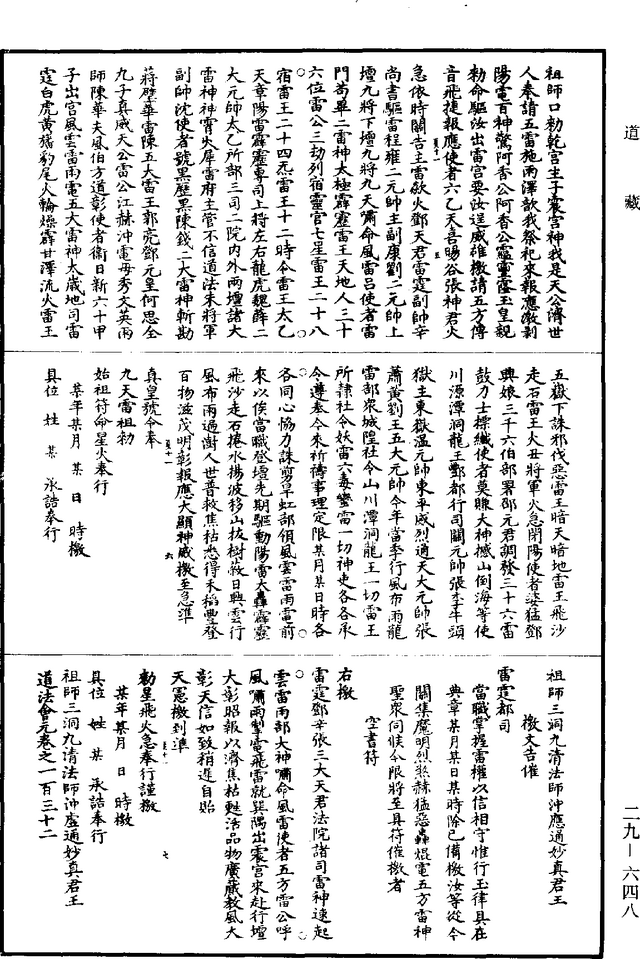 道藏
祖師口勑乾宮主子震宮神我是天公濟世
人奉請五雷施雨澤歆我祭祀來報應激剥
陽電百神驚阿香公阿香公靈靈靈玉皇親
勑命驅汝出雷宮要汝逞威雄檄請五方傳
音飛捷報應使者六乙天喜暘谷張神君火
急依時關告主雷歘火鄧天君雷霆副帥辛
尚書驅雷程雍二元帥主副康劉二元帥上
壇九將下壇九將九天嘯命風雷呂使者雷
門苟畢二雷神太極霹靂雷王天地人三十
六位雷公三劫列宿靈官七星雷王二十八
宿雷王二十四炁雷王十二時令雷王太乙
天章陽雷霹靂專司上將左右龍虎魏薛二
大元帥太乙所部三司二院內外兩壇諸大
雷神神霄火犀雷府主管不信道法朱將軍
副帥沈使者號黑歷黑陳錢二大雷神斬勘
蔣壁華雷陳五大雷王郭亮鄧元皇何思全
九子真威天公雷公江赫沖電母秀文英雨
師陳華夫風伯方道彰使者衛日新六十甲
子出宮風雲雷雨電五大雷神太歲地司雷
霆白虎黃旛豹尾火輪燥霹甘澤流火雷王
五嶽下誅邪伐惡雷王暗天暗地雷王飛沙
走石雷王火丑將軍火急閉陽使者婆猛鄧
興娘三千六伯部署邵元君調發三十六雷
鼓力士摽纖使者莫賺大神撼山倒海等使
川源潭洞龍王酆都行司關元帥張李牛頭
獄主東嶽溫元帥東平威烈通天大元帥張
蕭黃劉王五大元帥今年當季行風布雨龍
雷部衆城隍社令山川潭洞龍王一切雷王
所隸社令妖雷六毒蠻雷一切神吏各各承
今遵奉今來祈禱事理定限某月某日時各
各同心恊力誅剪旱虹部領風雲雷雨電前
來以俟當職登壇先期驅動陽雷大轟霹靂
飛沙走石捲水揚波移山拔樹蔽日興雲行
風布雨過澍人世普救焦枯悉得禾稻豐登
百物滋茂明彰報應大顯神威檄至急準
真皇號令奉
九天雷祖勑
始祖符命星火奉行
某年某月某日時檄
具位姓某承誥奉行
祖師三洞九清法師沖應通妙真君王
檄文告催
雷霆都司
當職掌握雷權以信相守惟行玉律具在
典章某月某日某時除已備檄汝等從今
闗集魔明烈崇赫猛惡轟焜電五方雷神
聖衆伺候今限將至具符催檄者
空書符
右檄
雷霆鄧辛張三大天君法院諸司雷神速起
雲雷雨部大神嘯命風雷使者五方雷公呼
風嘯雨掣電飛雷就巽隅出震宮來赴行壇
大彰昭報以濟焦枯甦活品物廣蔵教風大
彰天信如致稍遲自貽
天憲檄到準
勑星飛火急奉行謹檄
某年某月日時檄
具位姓某承誥奉行
祖師三洞九清法師沖虛通妙真君王
道法會元卷之一百三十二
二九—六四八